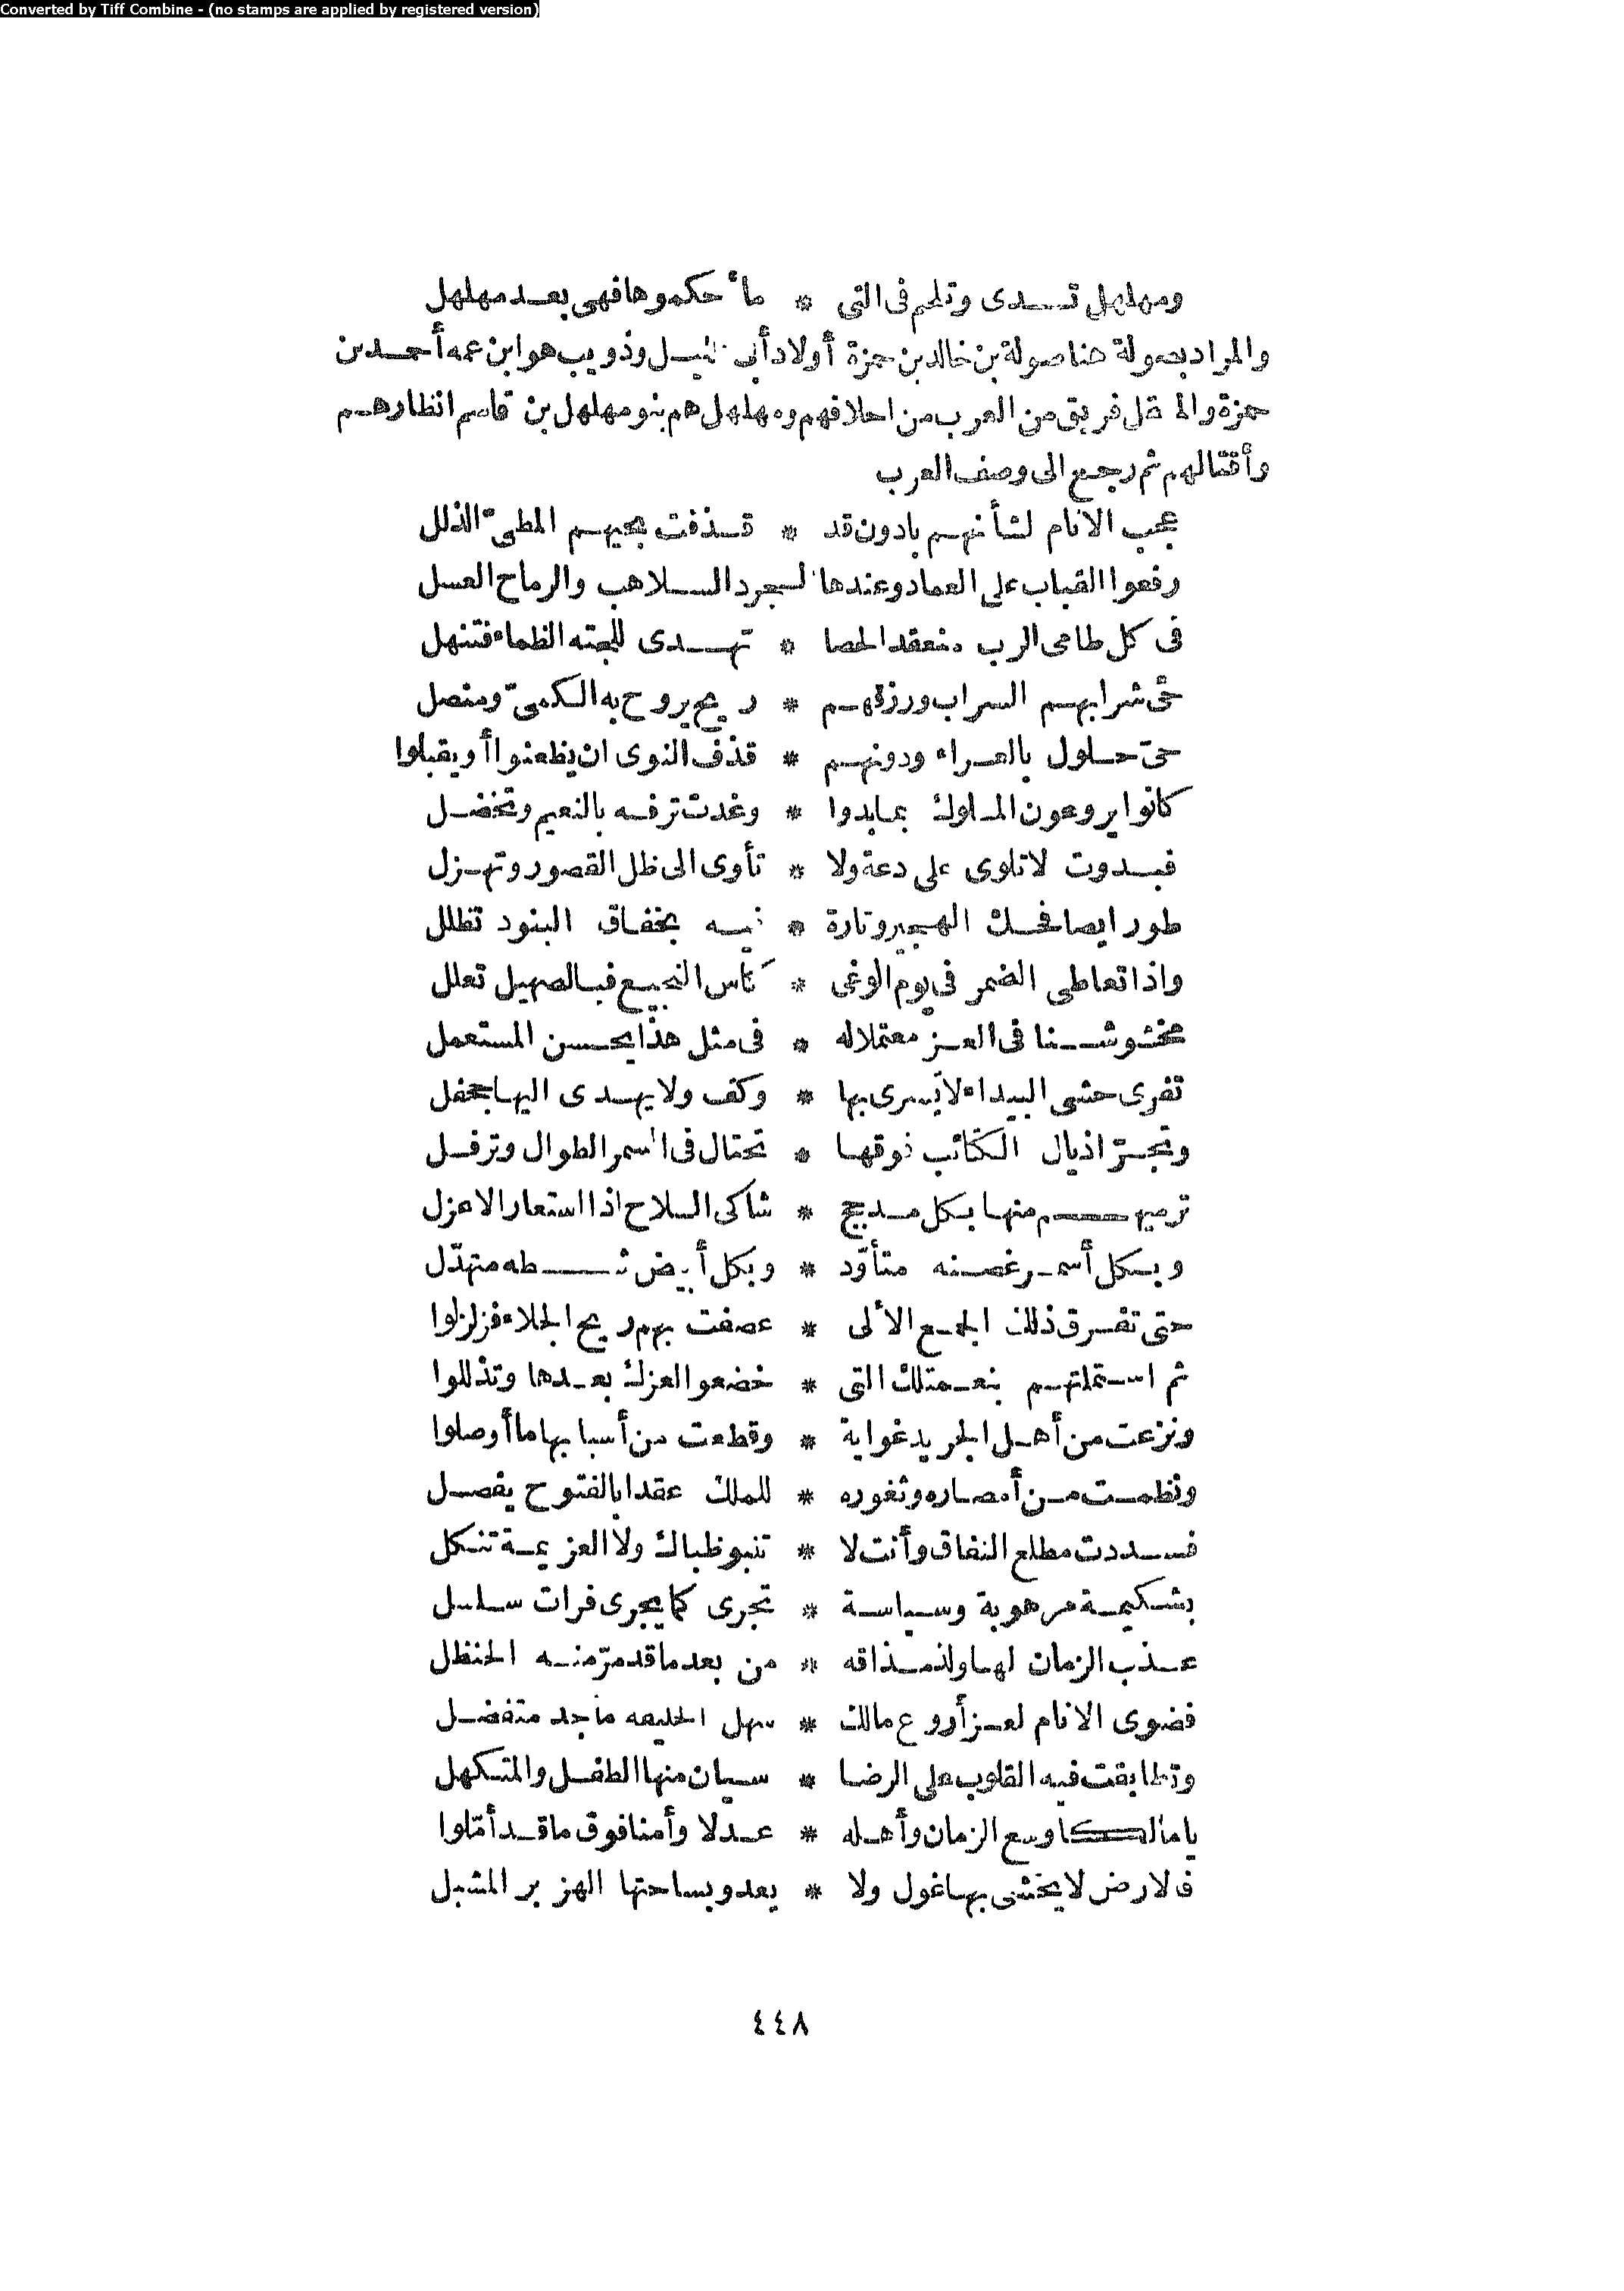 Converted by Tiff Combine - (no stamps are applied by registered version)
ومهلهل تسدى وتلحم فى التى * ما أحكموها فهى بعد مهلهل
والمراد بصولة هنا صولة بن خالد بن حمزة أولاد أبى الليل وذويب هو ابن عمه أحمد بن
حمزة والمعقل فريق من العرب من احلافهم ومهلهل هم بنو مهلهل بن قاسم انظارهم
وأقتالهم ثم رجع الى وصف العرب
عجب الانام لشأنهم بادون قد * قذفت بحيهم المطىّ الذلل
رفعوا القباب على العماد وعندها الجرد السلاهب والرماح العسل
فى كل طامى الرب منعقد الحصا * تهدى للجته الظماء فتنهل
حىّ شرابهم السراب ورزقهم * ريح يروح به الكمىّ ومنصل
حىّ حلول بالعراء ودونهم * قذف النوى ان يظعنوا أو يقبلوا
كانوا يروعون الملوك بما بدوا * وغدت ترفه بالنعيم وتخضل
فبدوت لا تلوى على دعة ولا * تأوى الى ظل القصور وتهزل
طورا يصافحك الهجير وتارة * فيه بخفاق البنود تظلل
واذا تعاطى الضمر فى يوم الوغى * كأس النجيع فبالصهيل تعلل
مخشوشنا فى العز معتملا له * فى مثل هذا يحسن المستعمل
تفرى حشى البيداء لا يسرى بها * وكف ولا يهدى اليها جحفل
وتجرّ اذيال الكتائب فوقها * تختال فى السمر الطوال وترفل
ترميهم منها بكل مدجج * شاكى السلاح اذا استعار الاعزل
وبكل أسمر غصنه متأوّد * وبكل أبيض شطه متهدّل
حتى تفرق ذلك الجمع الألى * عصفت بهم ريح الجلاء فزلزلوا
ثم استملتهم بنعمتك التى * خضعوا لعزك بعدها وتذللوا
ونزعت من أهل الجريد غواية * وقطعت من أسبابها ما أوصلوا
ونظمت من أمصاره وثغوره * للملك عقدا بالفتوح يفصل
فسددت مطلع النفاق وأنت لا * تنبو ظباك ولا العزيمة تنكل
بشكيمة مرهوبة وسياسة * تجرى كما يجرى فرات سلسل
عذب الزمان لها ولذ مذاقه * من بعد ما قد مرّ منه الحنظل
فضوى الانام لعز أروع مالك * سهل الخليقه ماجد متفضل
وتطابقت فيه القلوب على الرضا * سيان منها الطفل والمتكهل
يا مالكا وسع الزمان وأهله * عدلا وأمنا فوق ما قد أمّلوا
فالارض لا يخشى بها غول ولا * يعدو بساحتها الهزبر المشبل
٤٤٨